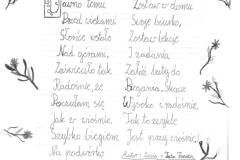 Dawno temu
Przed wiekami
Słońce wstało
Nad górami,
Zaświeciło tak
Radośnie, że
Poczułam się
Jak w wiośnie.
Szybko biegiem
Na podwórko
Zostaw w domu
Swoje biurko,
Zostaw lekcje
I zadania
Załóż buty do
Biegania. Skacz
Wysoko i radośnie,
Tak to zwykle
Jest przy wiośnie,
Autor: